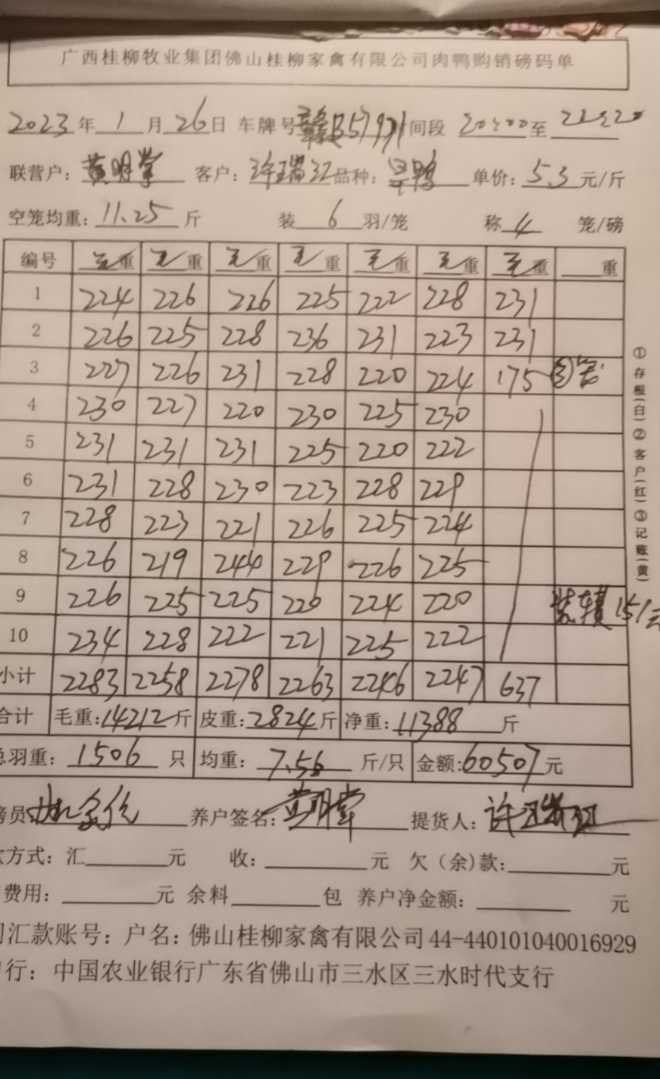 广西桂柳牧业集团佛山桂柳家禽有限公司肉鸭购销磅码单
2023年1月26日 车牌号 间段20:00至22:20
联营户:黄明堂 客户:许瑞江 品种:旱鸭 单价:5.3元/斤
空笼均重:11.25斤 装6羽/笼 称4笼/磅
编号 毛重 毛重 毛重 毛重 毛重 毛重 毛重 重
1 224 226 226 225 222 228 231
2 226 225 228 236 231 223 231
3 227 226 231 228 220 224 175 ③笼
4 230 227 220 230 225 230
5 231 231 231 225 220 222
6 231 228 230 223 228 229
7 228 223 221 226 225 224
8 226 219 244 229 226 225
9 226 225 225 220 224 220 151元
10 234 228 222 221 225 222
小计 2283 2258 2278 2263 2246 2247 637
合计 毛重:14212斤 皮重:2824斤 净重:11388斤
总羽重:1506只 均重:7.56斤/只 金额:60507元
员 养户签名:黄明堂 提货人:许瑞江
方式:汇 元 收: 元 欠(余)款: 元
费用: 元 余料 包 养户净金额: 元
汇款账号:户名:佛山桂柳家禽有限公司44-440101040016929
行:中国农业银行广东省佛山市三水区三水时代支行
①存根(白)②客户(红)③记账(黄)